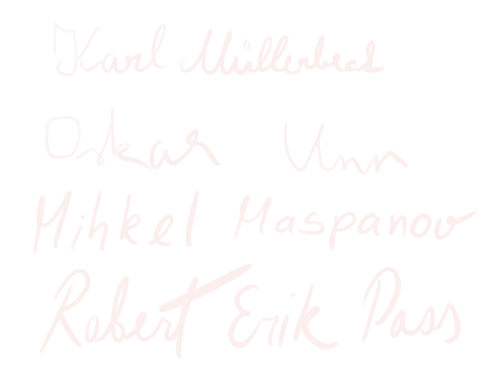 Karl Müllerbeck
Oskar Unn
Mihkel Maspanov
Robert Erik Pass